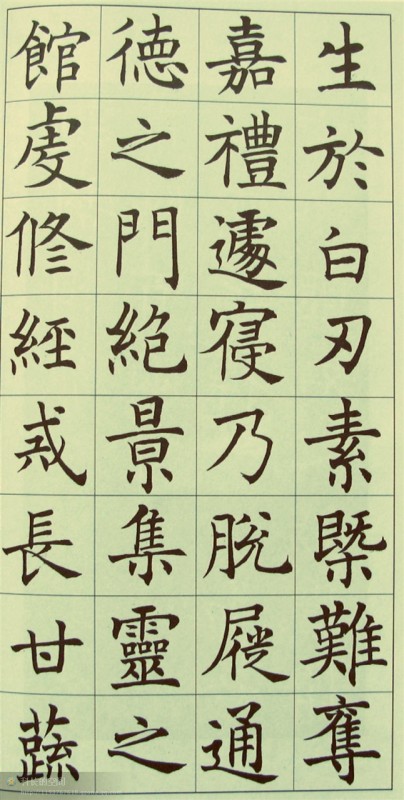 生於白刃素槩難奪
嘉禮遽寢乃脫屣通
德之門絕景集靈之
館虔修經戒長甘蔬